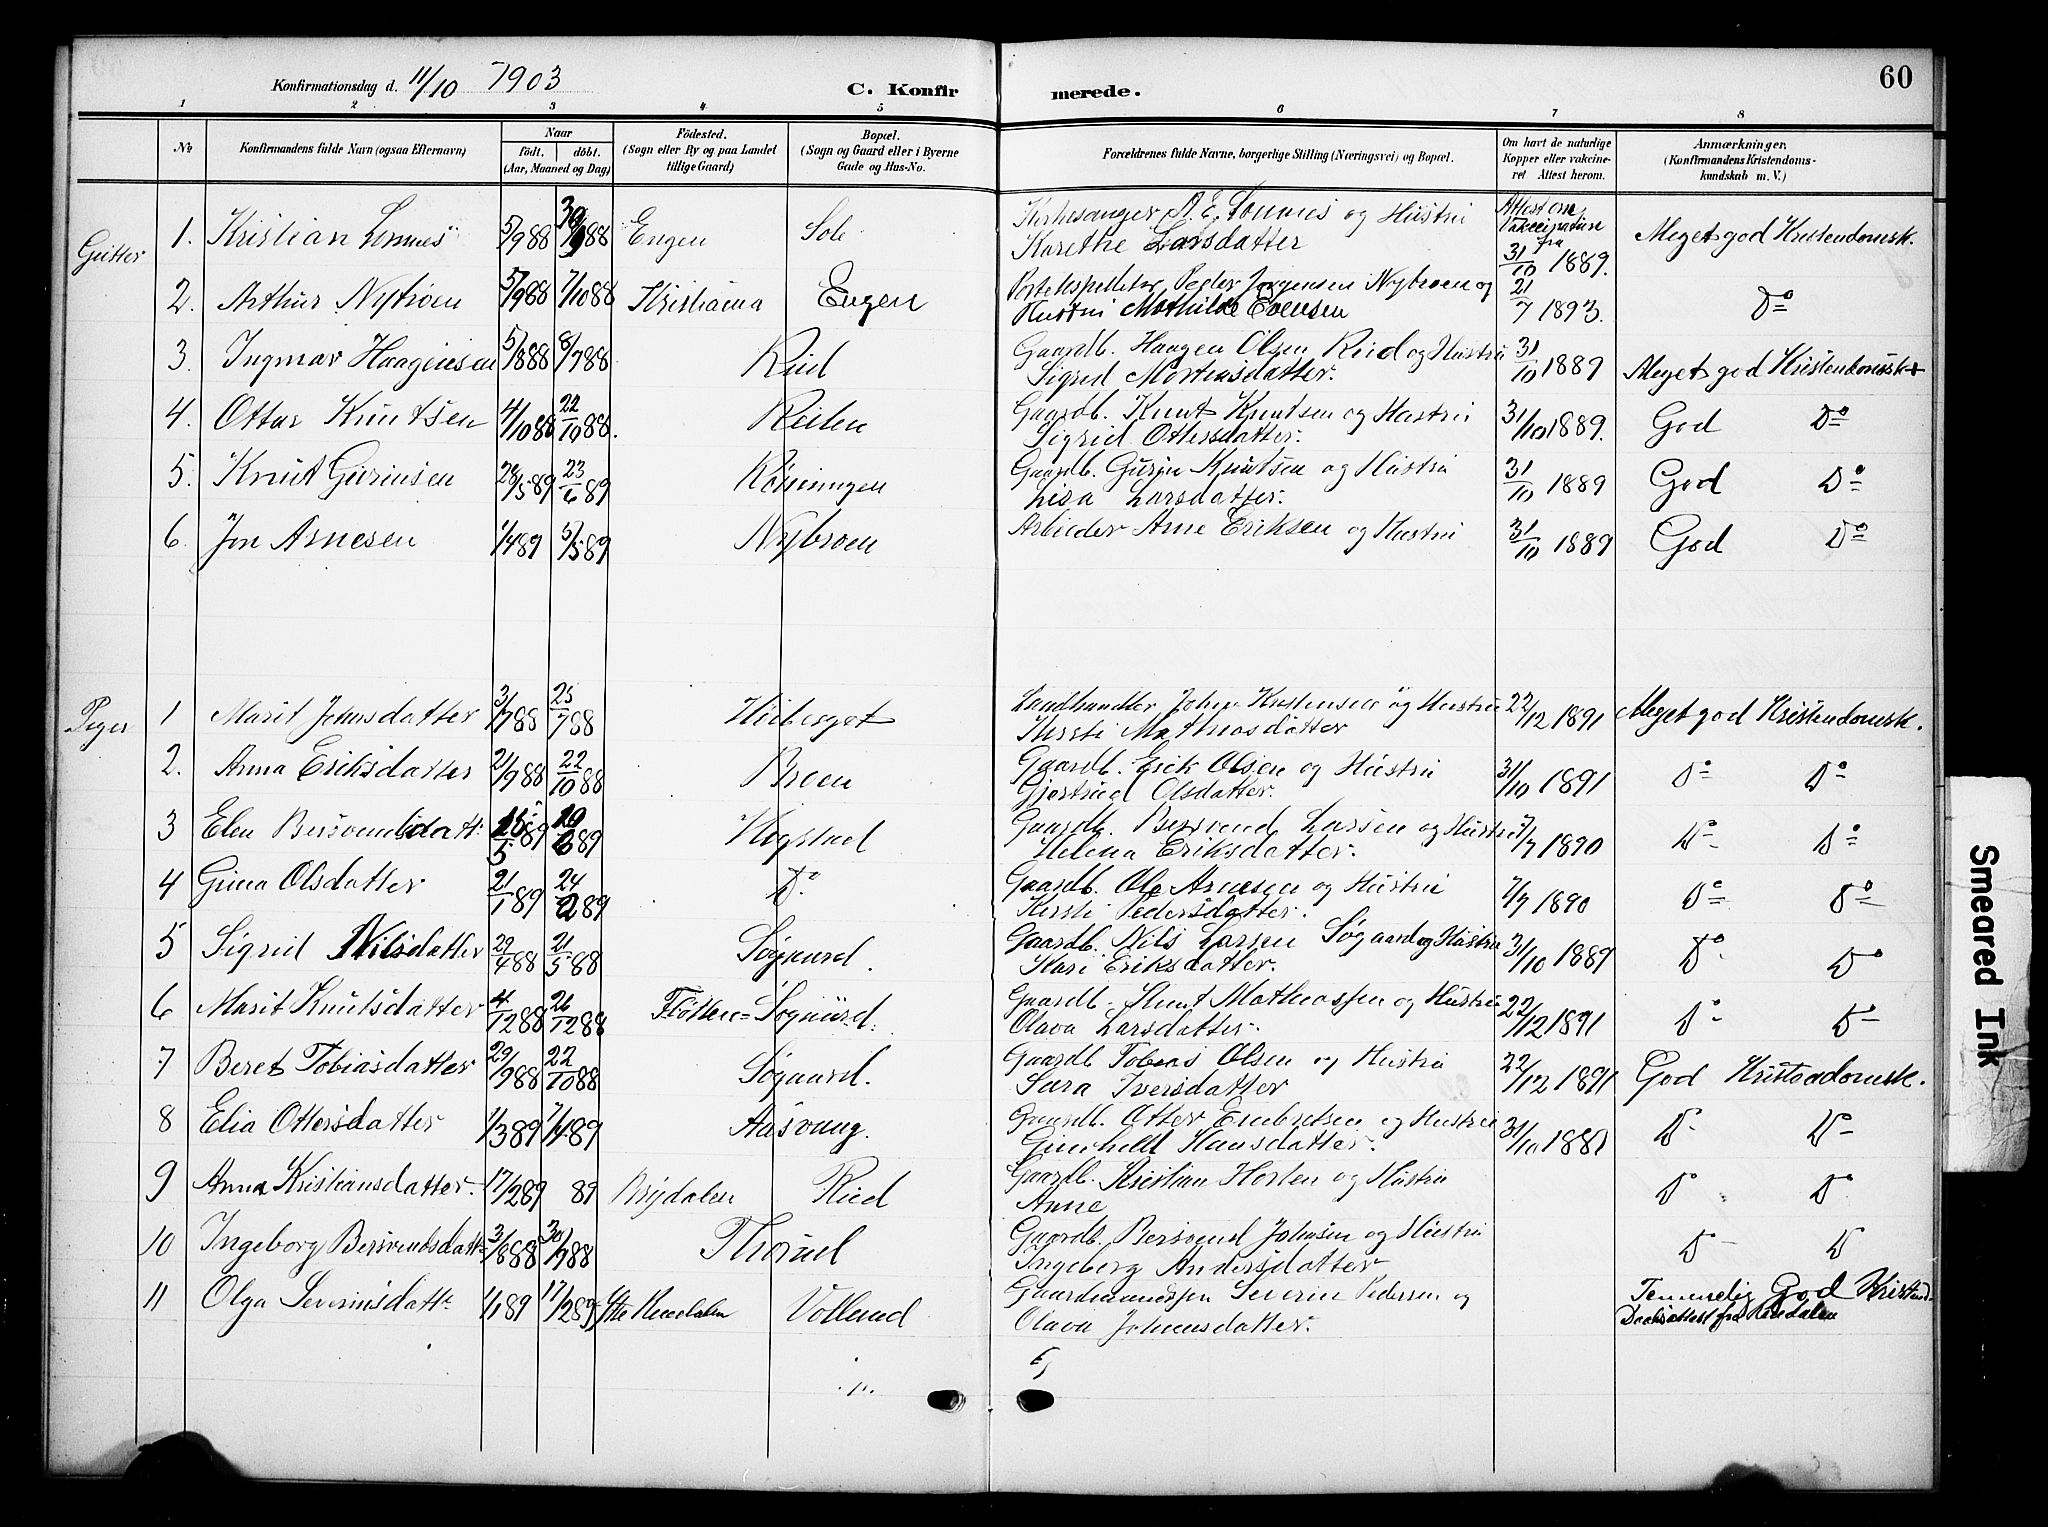 Konfirmationsdag d. 11/10 1903 C. Konfir merede. 60
1 2 3 4 5 6 7 8
No Konfirmandens fulde Navn (ogsaa Efternavn) Naar födt. döbt. (Aar, Maaned og Dag) Födested. (Sogn eller By og paa Landet tillige Gaard) Bopæl. (Sogn og Gaard eller i Byerne Gade og Hus-No. Forældrenes fulde Navne, borgerlige Stilling (Næringsvei) og Bopæl. Om havt de naturlige Kopper eller vakcineret Attest herom. Anmærkninger. (Konfirmandens Kristendomskundskab m. V.)
Gutter 1. Kristian 5/9 88 88 Engen Kirkesanger A. E. og Hustru Attest om fra
Karethe Larsdatter 31/10 1889. Meget god Kristendomsk.
2. Arthur Nybroen 5/9 88 7/10 88 Kristiania Engen Jörgensen Nybroen og 21/7 1893. Do
Hustru Mathilde Evensen
3. Ingmar Haagensen 5/8 88 8/7 88 Gaardb. Haagen Olsen og Hustru 31/10 1889 Meget god Kristendomsk
Sigrid Mortensdatter.
4. Ottar Knutsen 4/10 88 22/10 88. Gaardb. Knut Knutsen og Hustru 31/10 1889. God Do
Sigrid Ottersdatter.
5. Knut Gurinsen 28/5 89 23/6 89 Gaardb. Knutsen og Hustru 31/10 1889 God Do
Lisa Larsdatter.
6. Jon Arnesen 1/4 89 5/5 89 Nybroen Arbeider Arne Eriksen og Hustru 31/10 1889 God Do
Piger 1 Marit Johnsdatter 3/7 88 25/7 88 Landhandler John Kristensen og Hustru 22/12 1891 Meget god Kristendomsk.
Kirsti Mathiasdatter
2. Anna Eriksdatter 2/9 88 22/10 88 Broen Gaardb. Erik Olsen og Hustru 31/10 1891 Do Do
Gjertrud Olsdatter.
3 Elen 89 89 Gaardb. Bersvend Larsen og Hustru 7/7 1890 Do Do
Helena Eriksdatter.
4 Olsdatter 21/1 89 24/2 89 Do Gaardb. Ole Arnesen og Hustru 7/7 1890 Do Do
Kirsti Pedersdatter.
5 Sigrid Nilsdatter 29/4 88 21/5 88 Søgaard. Gaardb. Nils Larsen Søgaard og Hustru 31/10 1889 Do Do
Kari Eriksdatter.
6 Marit Knutsdatter 4/12 88 26/12 88 Søgaard. Gaardb. Knut Mathiassen og Hustru 22/12 1891 Do Do
Olava Larsdatter.
7 Beret Tobiasdatter 29/9 88 22/10 88 Søgaard. Gaardb Tobias Olsen og Hustru 22/12 1891 God Kristendomsk.
Sara Iversdatter
8 Elia Ottersdatter 1/3 89 7/4 89 Aasvang. Gaardb. Otter Embretsen og Hustru 31/10 Do Do
Hansdatter.
9 Anna Kristiansdatter. 17/2 89 89 Gaardb. Kristian og Hustru Do Do
Anne
10 Ingeborg Bersvendsdatt 3/8 88 30/9 88 Gaardb. Bersvend Johnsen og Hustru Do Do
Ingeborg Andersdatter
11 Olga Severinsdatt 1/1 89 17/2 89 Ytre Rendalen Severin Pedersen og Temmelig God Kristend.
Olava Johannesdatter. Daabsattest fra Rendalen
Smeared Ink